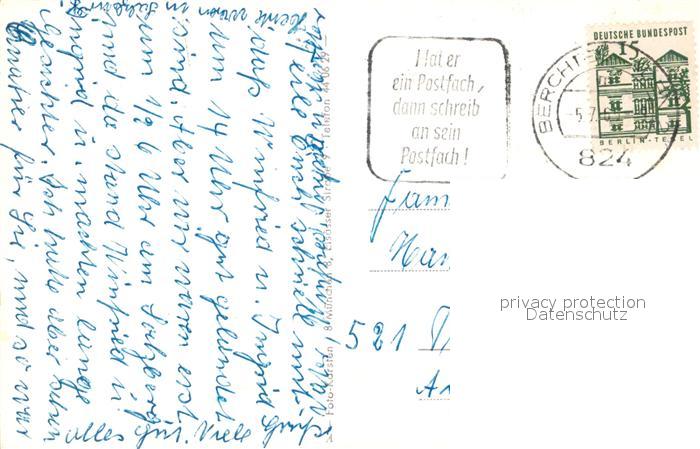 teile Euch schnell mit,
Heute waren in Salzburg.
daß Winfried u. Ingrid
um 14 Uhr gut gelandet
sind. Aber wir waren erst
um 1/2 6 Uhr am Salzberg
und da stand Winfried u.
Ingrid u. machten lange
Gesichter. Ich hatte aber schon
für Sie, und so war
alles gut. Viele Grüße
Foto-Karsten 8 München 8, Elsässer Straße Telefon 44 06 29
Hat er
ein Postfach,
dann schreib
an sein
Postfach!
BERCHT
-5.7.
824
DEUTSCHE BUNDESPOST
15
BERLIN-TEGEL
Fam
Han
521
privacy protection
Datenschutz